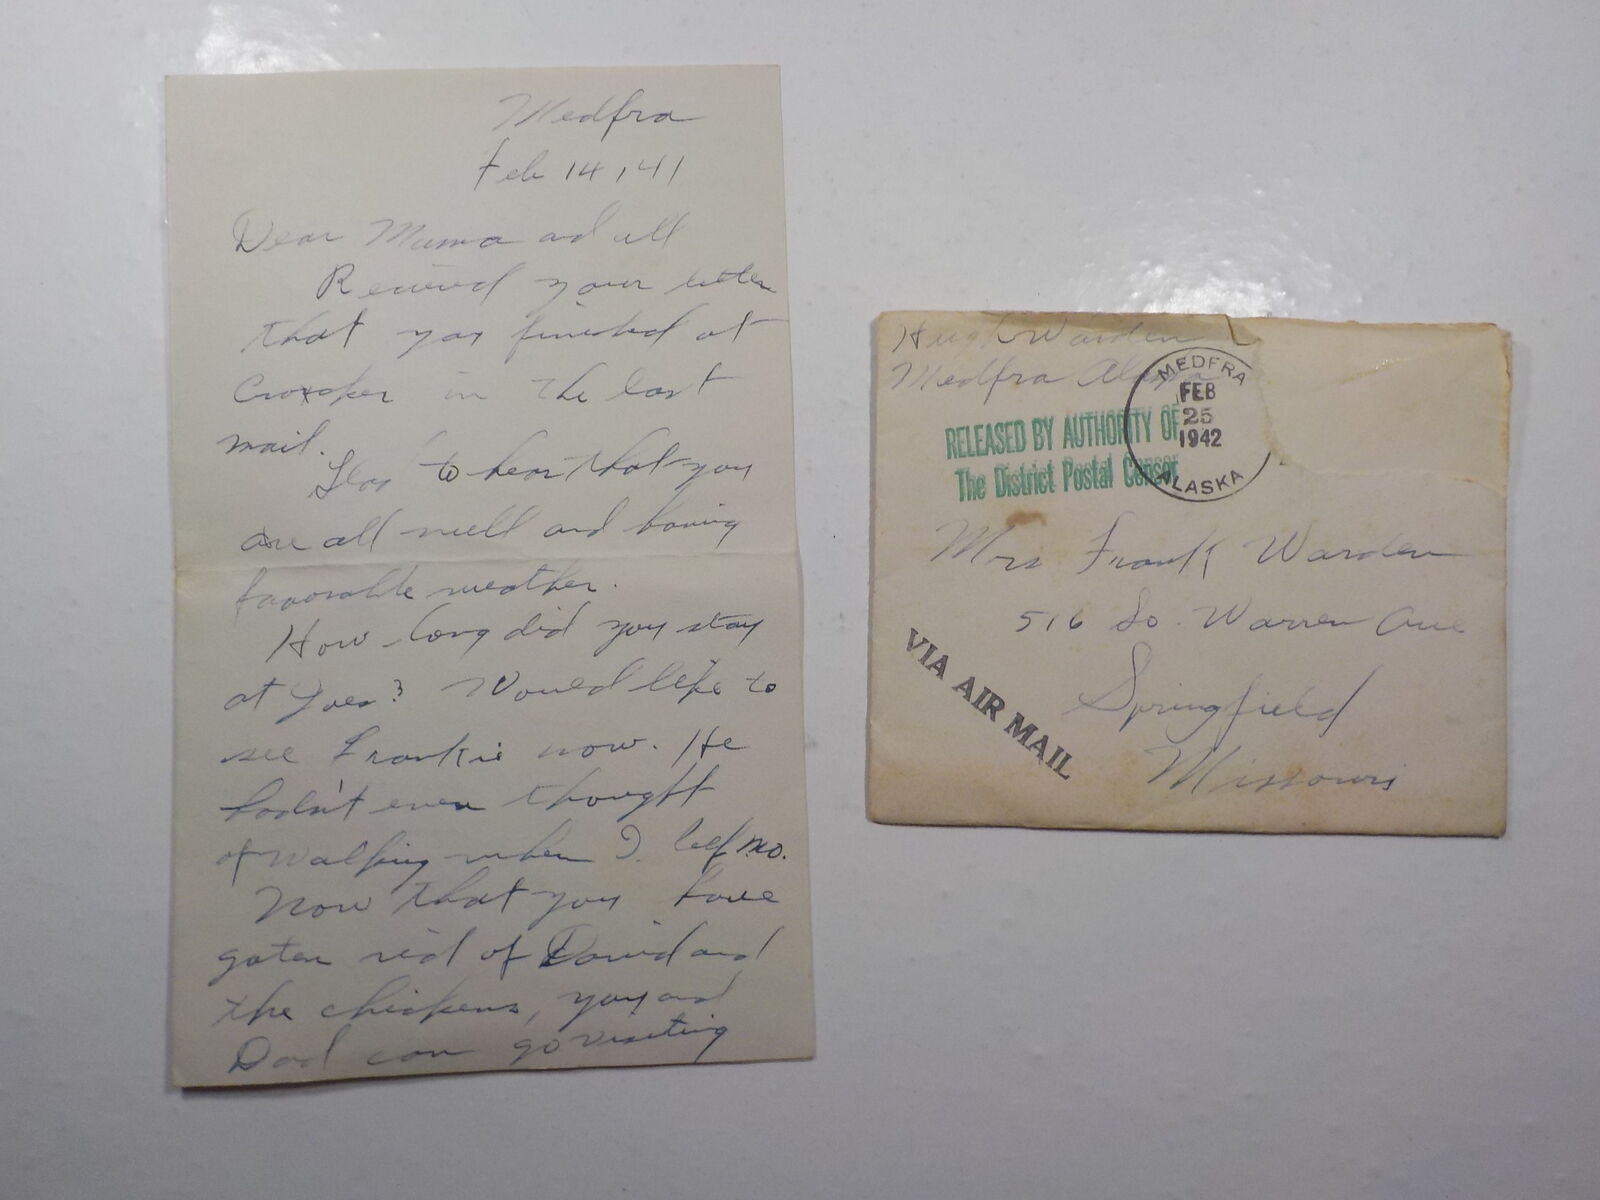 Medfra
Feb 14, 41
Dear Mama and all
Received your letter
that you finished at
Crocker in the last
mail.
Glad to hear that you
are all well and having
favorable weather.
How long did you stay
at Joes? Would like to
see Frankie now. He
hadn't even thought
of walking when I left Mo.
Now that you have
goten rid of David and
the chickens, you and
Dad can go visiting
Hugh Warden
Medfra Alaska
MEDFRA
FEB
25
1942
ALASKA
RELEASED BY AUTHORITY OF
The District Postal Censor
Mrs Frank Warden
516 So. Warren Ave
Springfield
Missouri
VIA AIR MAIL